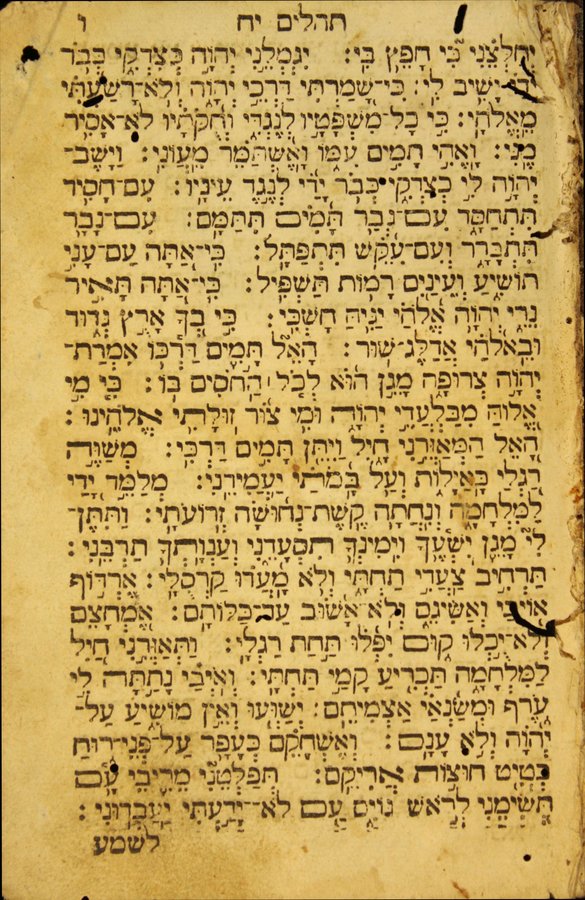 תהלים יח ו
יְחַלְּצֵנִי כִּי חָפֵץ בִּי׃ יִגְמְלֵנִי יְהוָה כְּצִדְקִי כְּבֹר
יָדַי יָשִׁיב לִי׃ כִּי־שָׁמַרְתִּי דַּרְכֵי יְהוָה וְלֹא־רָשַׁעְתִּי
מֵאֱלֹהָי׃ כִּי כָל־מִשְׁפָּטָיו לְנֶגְדִּי וְחֻקֹּתָיו לֹא־אָסִיר
מֶנִּי׃ וָאֱהִי תָמִים עִמּוֹ וָאֶשְׁתַּמֵּר מֵעֲוֹנִי׃ וַיָּשֶׁב־
יְהוָה לִי כְצִדְקִי כְּבֹר יָדַי לְנֶגֶד עֵינָיו׃ עִם־חָסִיד
תִּתְחַסָּד עִם־גְּבַר תָּמִים תִּתַּמָּם׃ עִם־נָבָר
תִּתְבָּרָר וְעִם־עִקֵּשׁ תִּתְפַּתָּל׃ כִּי־אַתָּה עַם־עָנִי
תוֹשִׁיעַ וְעֵינַיִם רָמוֹת תַּשְׁפִּיל׃ כִּי־אַתָּה תָּאִיר
נֵרִי יְהוָה אֱלֹהַי יַגִּיהַּ חָשְׁכִּי׃ כִּי בְךָ אָרֻץ גְּדוּד
וּבֵאלֹהַי אֲדַלֶּג־שׁוּר׃ הָאֵל תָּמִים דַּרְכּוֹ אִמְרַת־
יְהוָה צְרוּפָה מָגֵן הוּא לְכֹל הַחֹסִים בּוֹ׃ כִּי מִי
אֱלוֹהַּ מִבַּלְעֲדֵי יְהוָה וּמִי צוּר זוּלָתִי אֱלֹהֵינוּ׃
הָאֵל הַמְאַזְּרֵנִי חָיִל וַיִּתֵּן תָּמִים דַּרְכִּי׃ מְשַׁוֶּה
רַגְלַי כָּאַיָּלוֹת וְעַל בָּמֹתַי יַעֲמִידֵנִי׃ מְלַמֵּד יָדַי
לַמִּלְחָמָה וְנִחֲתָה קֶשֶׁת־נְחוּשָׁה זְרוֹעֹתָי׃ וַתִּתֶּן־
לִי מָגֵן יִשְׁעֶךָ וִימִינְךָ תִסְעָדֵנִי וְעַנְוַתְךָ תַרְבֵּנִי׃
תַּרְחִיב צַעֲדִי תַחְתָּי וְלֹא מָעֲדוּ קַרְסֻלָּי׃ אֶרְדּוֹף
אוֹיְבַי וְאַשִּׂיגֵם וְלֹא־אָשׁוּב עַד־כַּלּוֹתָם׃ אֶמְחָצֵם
וְלֹא־יֻכְלוּ קוּם יִפְּלוּ תַּחַת רַגְלָי׃ וַתְּאַזְּרֵנִי חַיִל
לַמִּלְחָמָה תַּכְרִיעַ קָמַי תַּחְתָּי׃ וְאֹיְבַי נָתַתָּה לִּי
עֹרֶף וּמְשַׂנְאַי אַצְמִיתֵם׃ יְשַׁוְּעוּ וְאֵין מוֹשִׁיעַ עַל־
יְהוָה וְלֹא עָנָם׃ וְאֶשְׁחָקֵם כְּעָפָר עַל־פְּנֵי־רוּחַ
כְּטִיט חוּצוֹת אֲרִיקֵם׃ תְּפַלְּטֵנִי מֵרִיבֵי עָם
תְּשִׂימֵנִי לְרֹאשׁ גּוֹיִם עַם לֹא־יָדַעְתִּי יַעַבְדוּנִי׃
לשמע